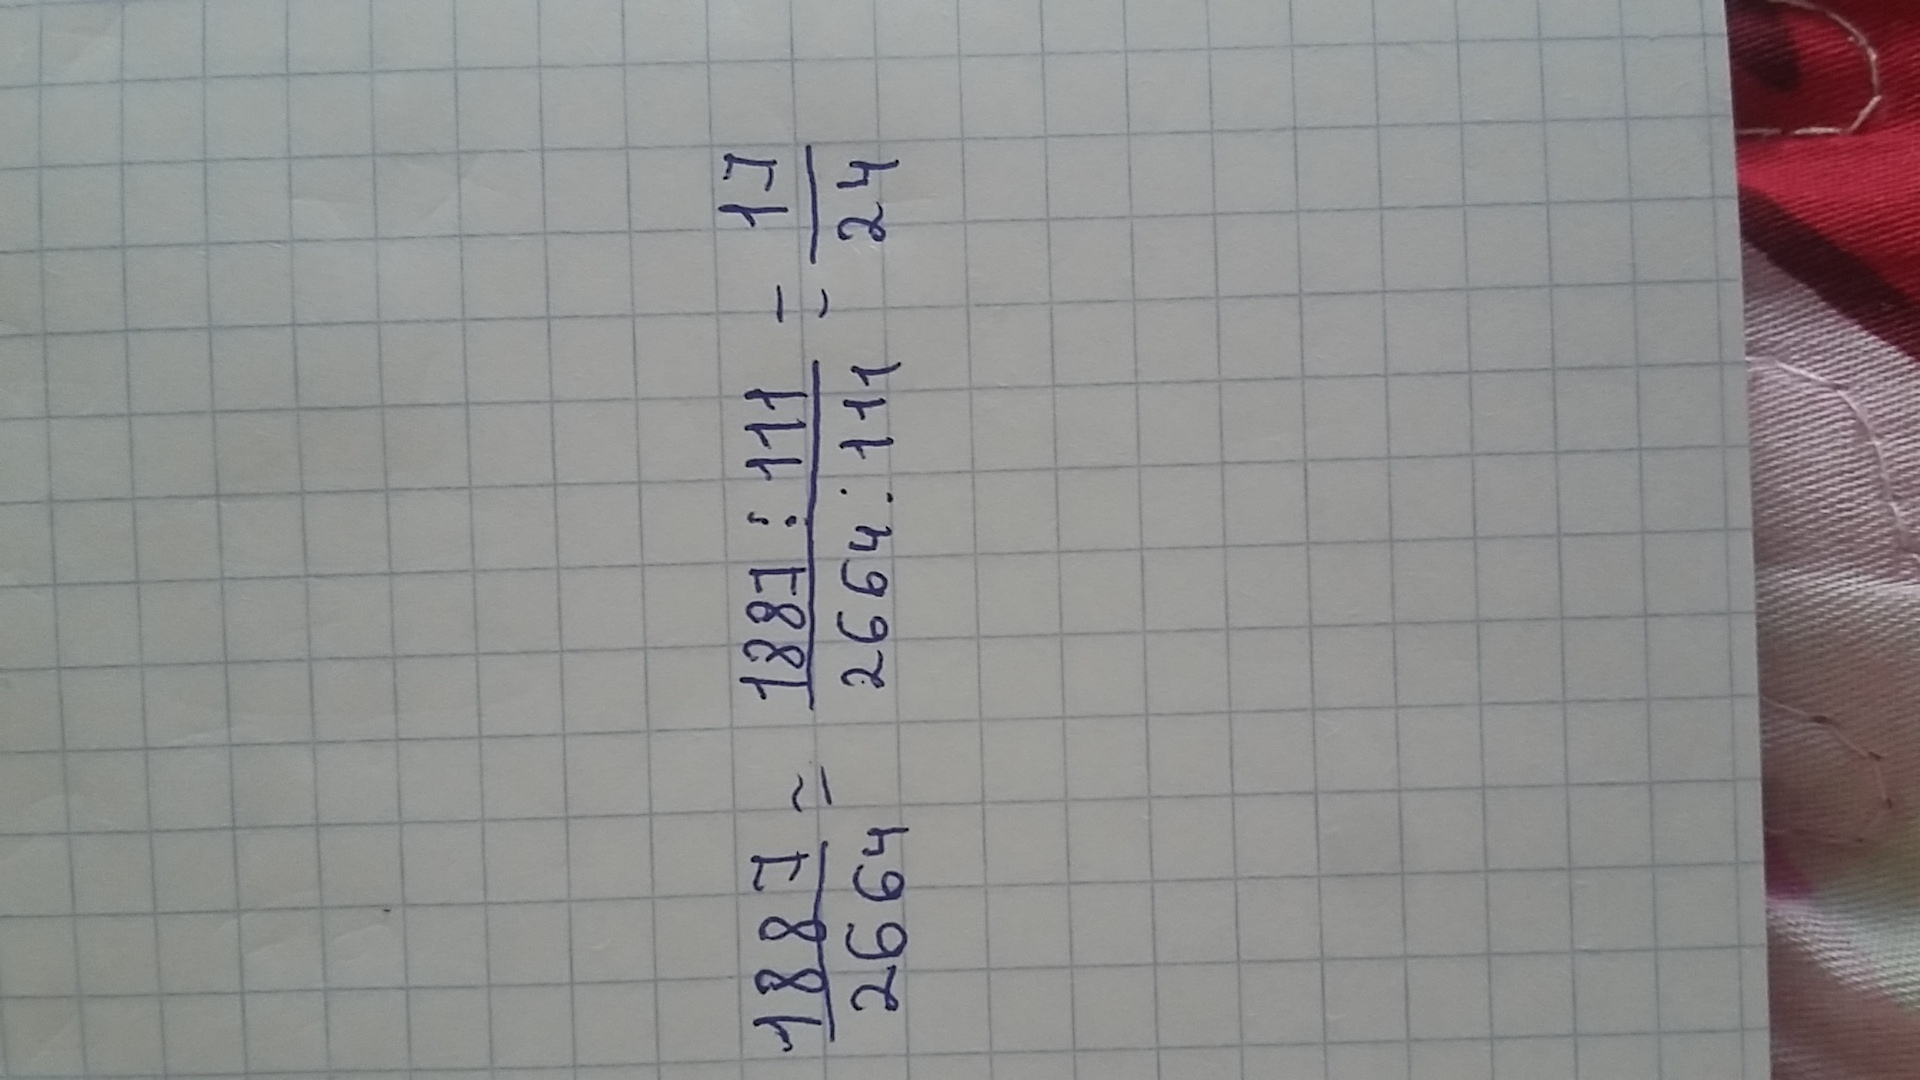 1887/2664 = 1887:111/2664:111 = 17/24